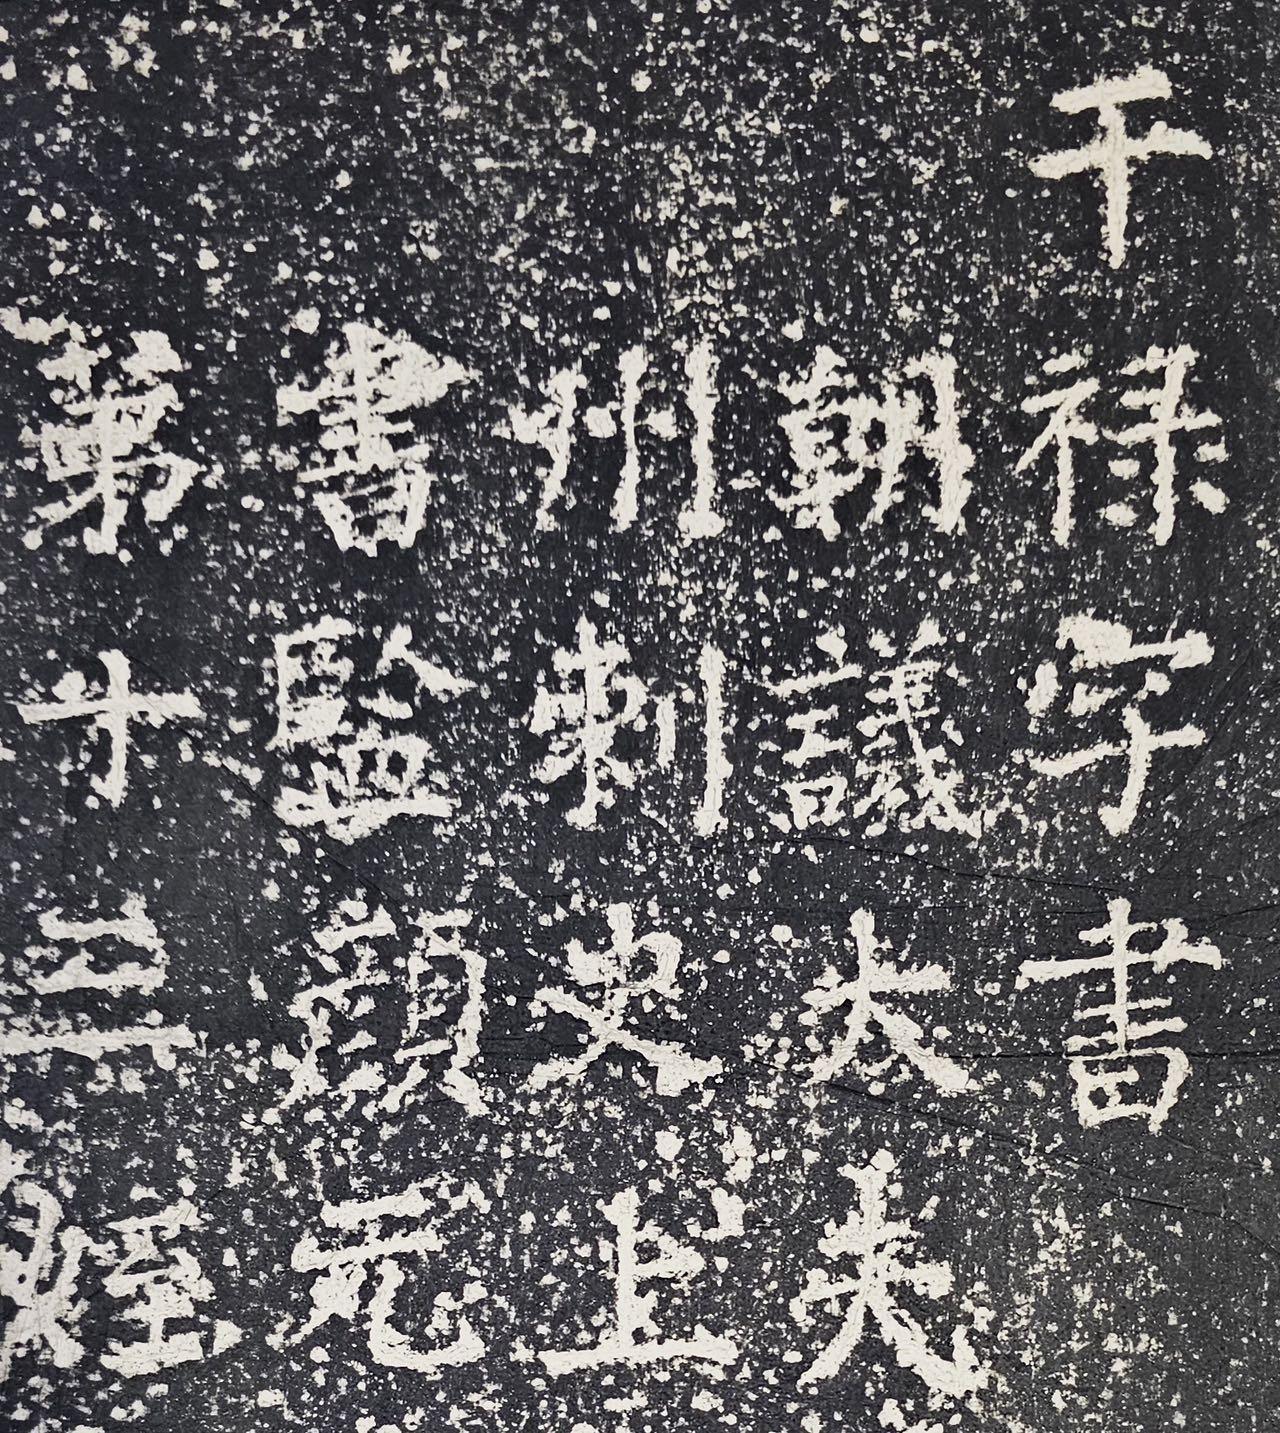 干禄字書
朝議大夫
州刺史上
書監顔元
第十三姪